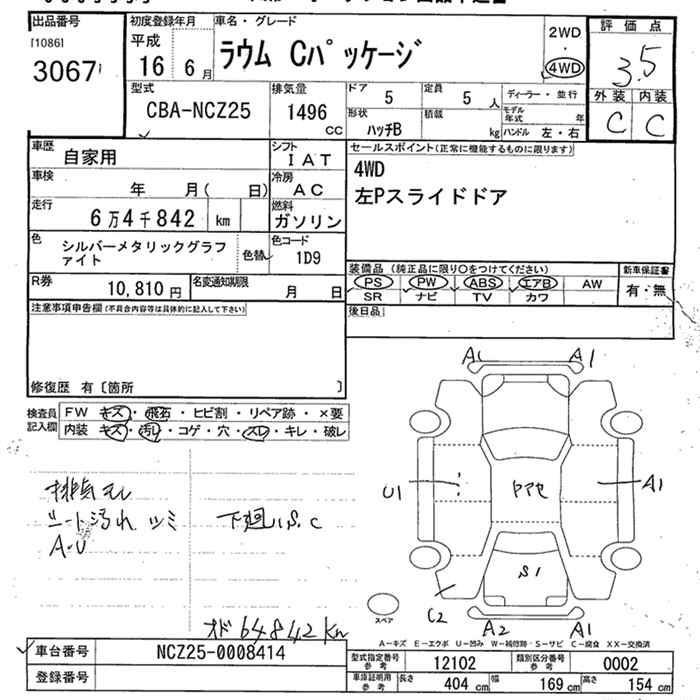 出品番号
[1086]
3067
初度登録年月
平成
16 6月
車名・グレード
ラウム Cパッケージ
2WD
・
4WD
評価点
3.5
外装 内装
C C
型式
CBA-NCZ25
排気量
1496
CC
ドア 5
定員 5人
形状 ハッチB
積載 kg
ディーラー・並行
モデル年式 年
ハンドル 左・右
車歴 自家用
シフト IAT
車検 年 月( 日)
冷房 AC
走行 6万4千842 km
燃料 ガソリン
色 シルバーメタリックグラファイト
色替
色コード 1D9
R券 10,810円
名変通知期限 月 日
セールスポイント(正常に機能するものに限ります)
4WD
左Pスライドドア
装備品(純正品に限り○をつけてください)
PS PW ABS エアB AW
SR ナビ TV カワ
新車保証書
有・無
後日品
注意事項申告欄(不具合内容等は具体的に記入して下さい)
修復歴 有〔箇所 〕
検査員記入欄
FW キズ・飛石・ヒビ割・リペア跡・×要
内装 キズ・汚レ・コゲ・穴・スレ・キレ・破レ
排気モレ
シート汚れ ツミ
A・U
下廻りS.C
オド 64842Km
A1 A1
U1
ドアセ
A1
S1
C2
A2 A1
スペア
A-キズ E-エクボ U-凹み W-補修跡 S-サビ C-腐食 XX-交換済
車台番号 NCZ25-0008414
登録番号
型式指定番号 参考 12102
類別区分番号 参考 0002
車庫証明用 参考 長さ 404cm 幅 169cm 高さ 154cm